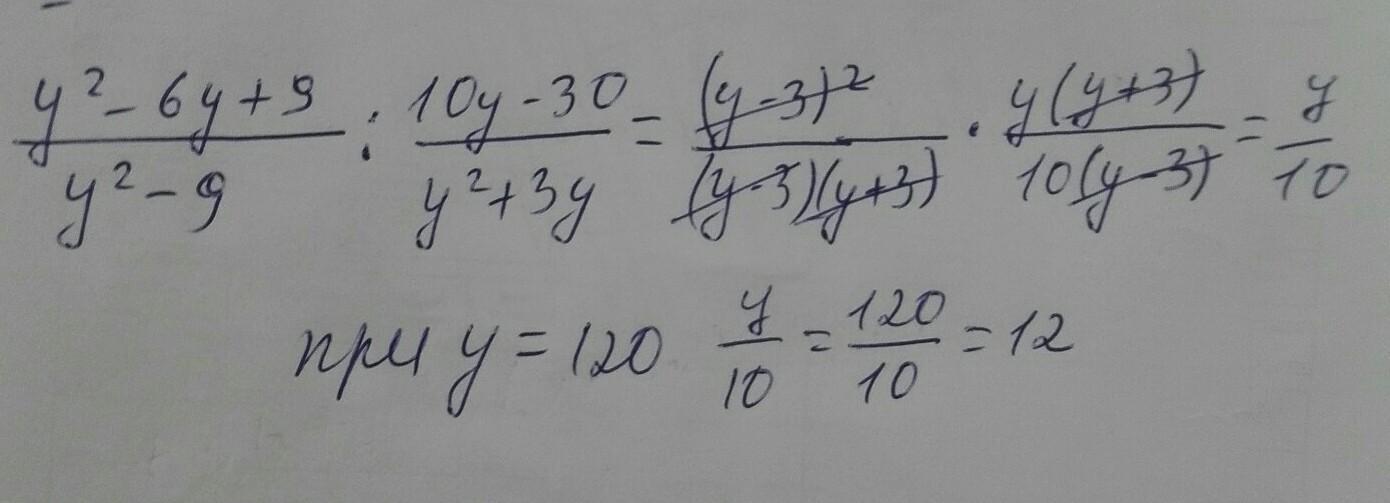 (y² - 6y + 9)/(y² - 9) : (10y - 30)/(y² + 3y) = (y-3)²/((y-3)(y+3)) · y(y+3)/(10(y-3)) = y/10
при y = 120 y/10 = 120/10 = 12